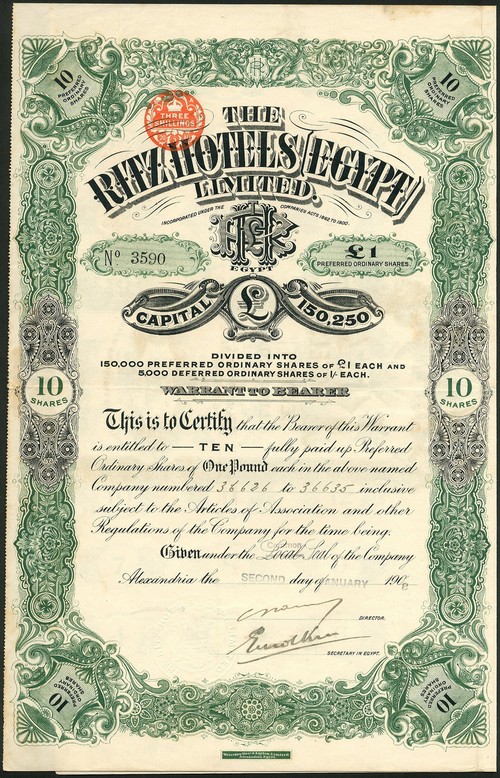 10
PREFERRED
ORDINARY
SHARES
10
PREFERRED
ORDINARY
SHARES
THREE
SHILLINGS
THE
RITZ HOTELS (EGYPT)
LIMITED.
INCORPORATED UNDER THE COMPANIES ACTS 1862 TO 1900.
EGYPT
No 3590
£1
PREFERRED ORDINARY SHARES.
CAPITAL £ 150,250
DIVIDED INTO
150,000 PREFERRED ORDINARY SHARES OF £1 EACH AND
5,000 DEFERRED ORDINARY SHARES OF 1/- EACH.
WARRANT TO BEARER
10
SHARES
10
SHARES
This is to Certify that the Bearer of this Warrant
is entitled to — TEN — fully paid up Preferred
Ordinary Shares of One Pound each in the above named
Company numbered 36626 to 36635 inclusive
subject to the Articles of Association and other
Regulations of the Company for the time being.
Given under the Seal of the Company
Alexandria the SECOND day of JANUARY 190
DIRECTOR.
SECRETARY IN EGYPT.
10
PREFERRED
ORDINARY
SHARES
10
PREFERRED
ORDINARY
SHARES